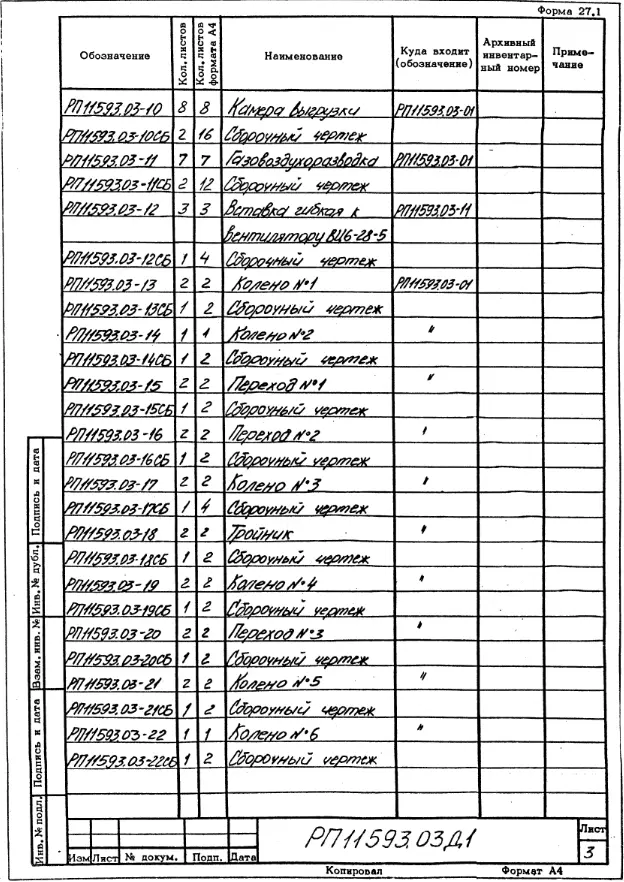 Форма 27.1
Обозначение Кол. листов Кол. листов формата А4 Наименование Куда входит (обозначение) Архивный инвентарный номер Примечание
РП11593.03-10 8 8 Камера выгрузки РП11593.03-01
РП11593.03-10СБ 2 16 Сборочный чертеж
РП11593.03-11 7 7 Газовоздухоразводка РП11593.03-01
РП11593.03-11СБ 2 12 Сборочный чертеж
РП11593.03-12 3 3 Вставка гибкая к РП11593.03-11
вентилятору ВЦ6-28-5
РП11593.03-12СБ 1 4 Сборочный чертеж
РП11593.03-13 2 2 Колено №1 РП11593.03-01
РП11593.03-13СБ 1 2 Сборочный чертеж
РП11593.03-14 1 1 Колено №2 "
РП11593.03-14СБ 1 2 Сборочный чертеж
РП11593.03-15 2 2 Переход №1 "
РП11593.03-15СБ 1 2 Сборочный чертеж
РП11593.03-16 2 2 Переход №2 "
РП11593.03-16СБ 1 2 Сборочный чертеж
РП11593.03-17 2 2 Колено №3 "
РП11593.03-17СБ 1 4 Сборочный чертеж
РП11593.03-18 2 2 Тройник "
РП11593.03-18СБ 1 2 Сборочный чертеж
РП11593.03-19 2 2 Колено №4 "
РП11593.03-19СБ 1 2 Сборочный чертеж
РП11593.03-20 2 2 Переход №3 "
РП11593.03-20СБ 1 2 Сборочный чертеж
РП11593.03-21 2 2 Колено №5 "
РП11593.03-21СБ 1 2 Сборочный чертеж
РП11593.03-22 1 1 Колено №6 "
РП11593.03-22СБ 1 2 Сборочный чертеж
Подпись и дата
Инв. № дубл.
Взам. инв. №
Подпись и дата
Инв. № подл.
Изм Лист № докум. Подп. Дата
РП11593.03Д1
Лист
3
Копировал Формат А4